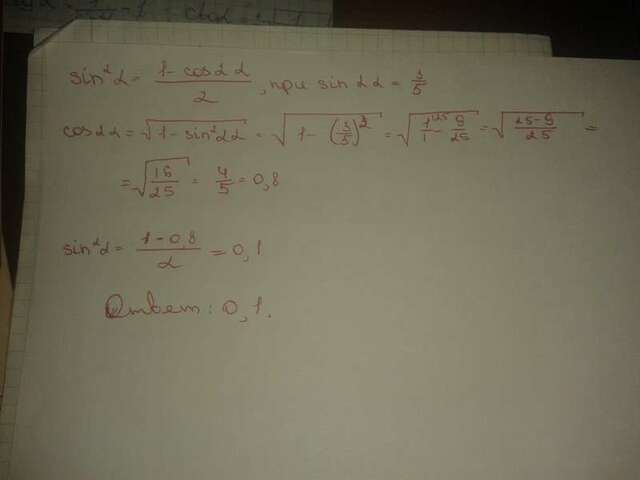 sin²α = (1 - cos2α)/2, при sin2α = 3/5
cos2α = √(1 - sin²2α) = √(1 - (3/5)²) = √(1/1 - 9/25) = √((25-9)/25) =
= √(16/25) = 4/5 = 0,8
sin²α = (1 - 0,8)/2 = 0,1
Ответ: 0,1.